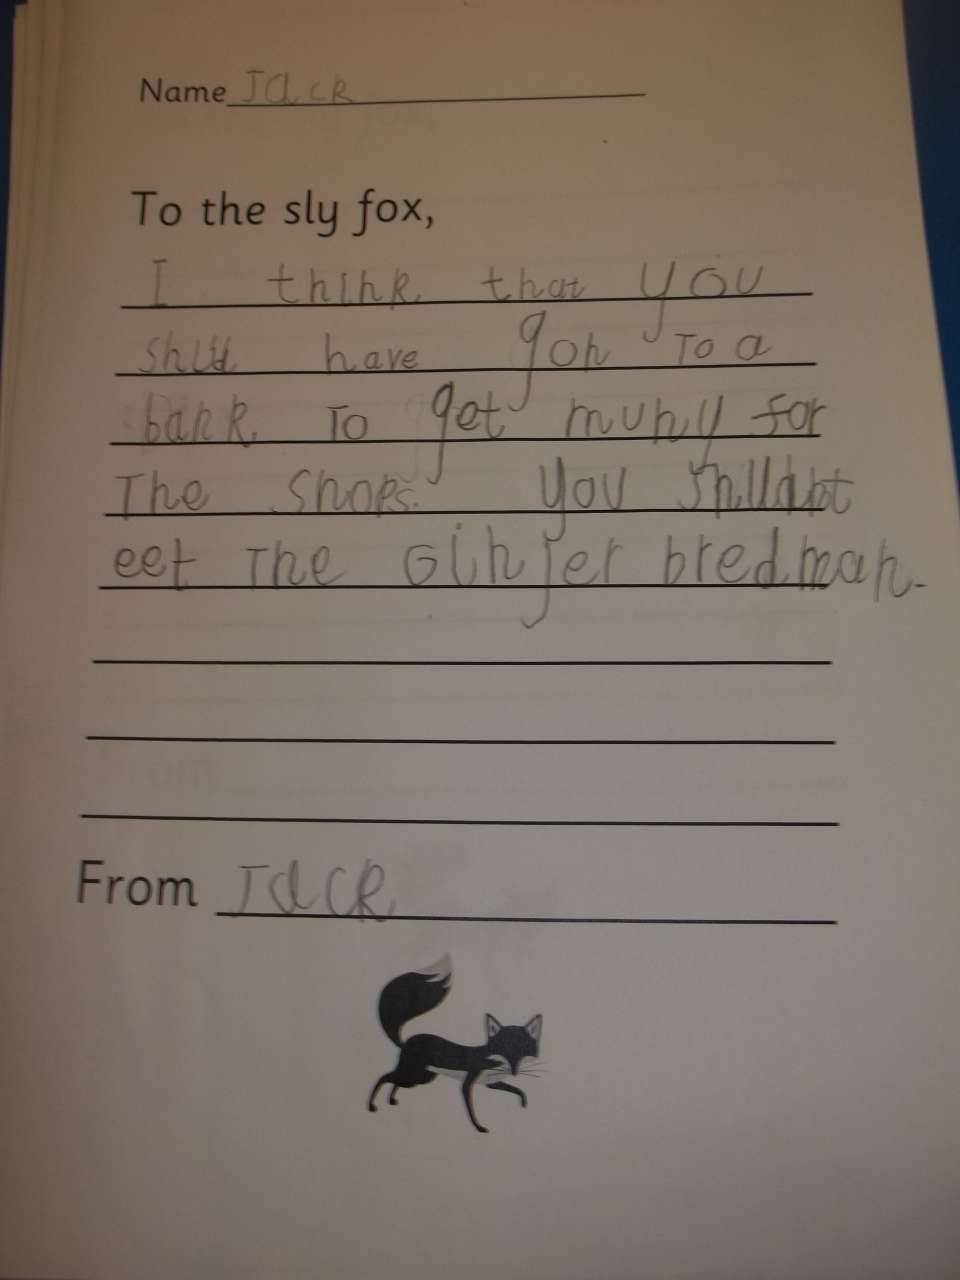 Name Jack
To the sly fox,
I think that you
shud have gon to a
bank To get muny for
The Shops. you shudnt
eet The Ginjer bredman.
From Jack